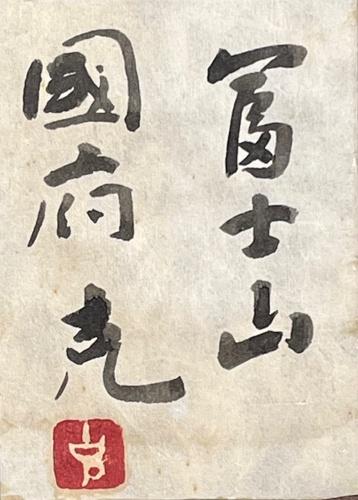 冨士山
國府克